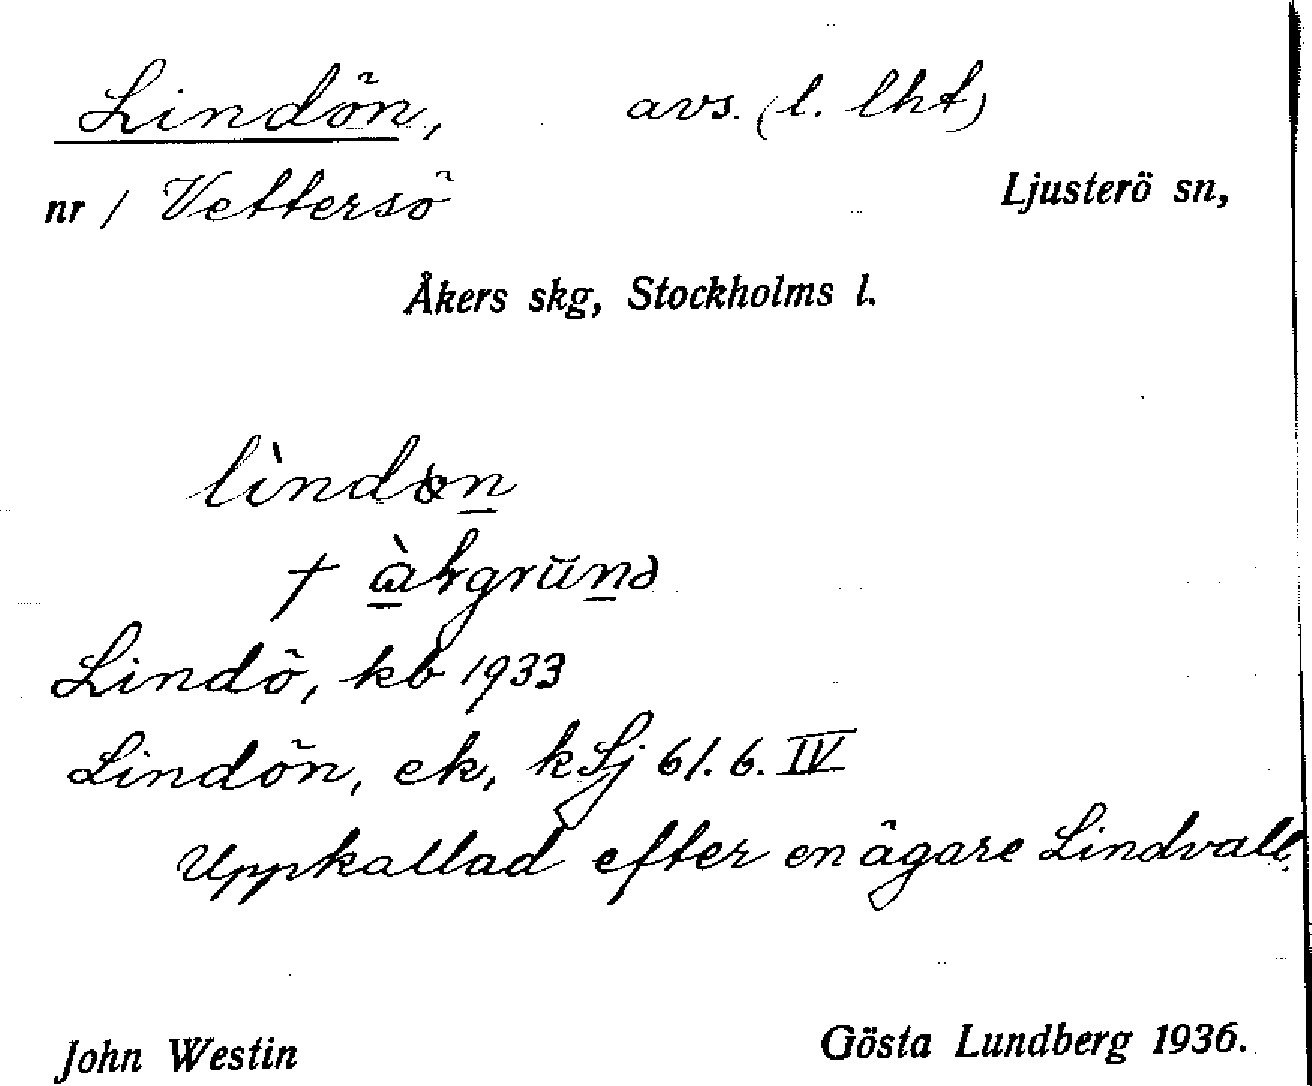 Lindön, avs. (l. lht)
nr 1 Vettersö Ljusterö sn,
Åkers skg, Stockholms l.
Lindö, kb 1933
Lindön, ek, kLj 61. 6. IV
Uppkallad efter en ägare Lindvall.
John Westin Gösta Lundberg 1936.